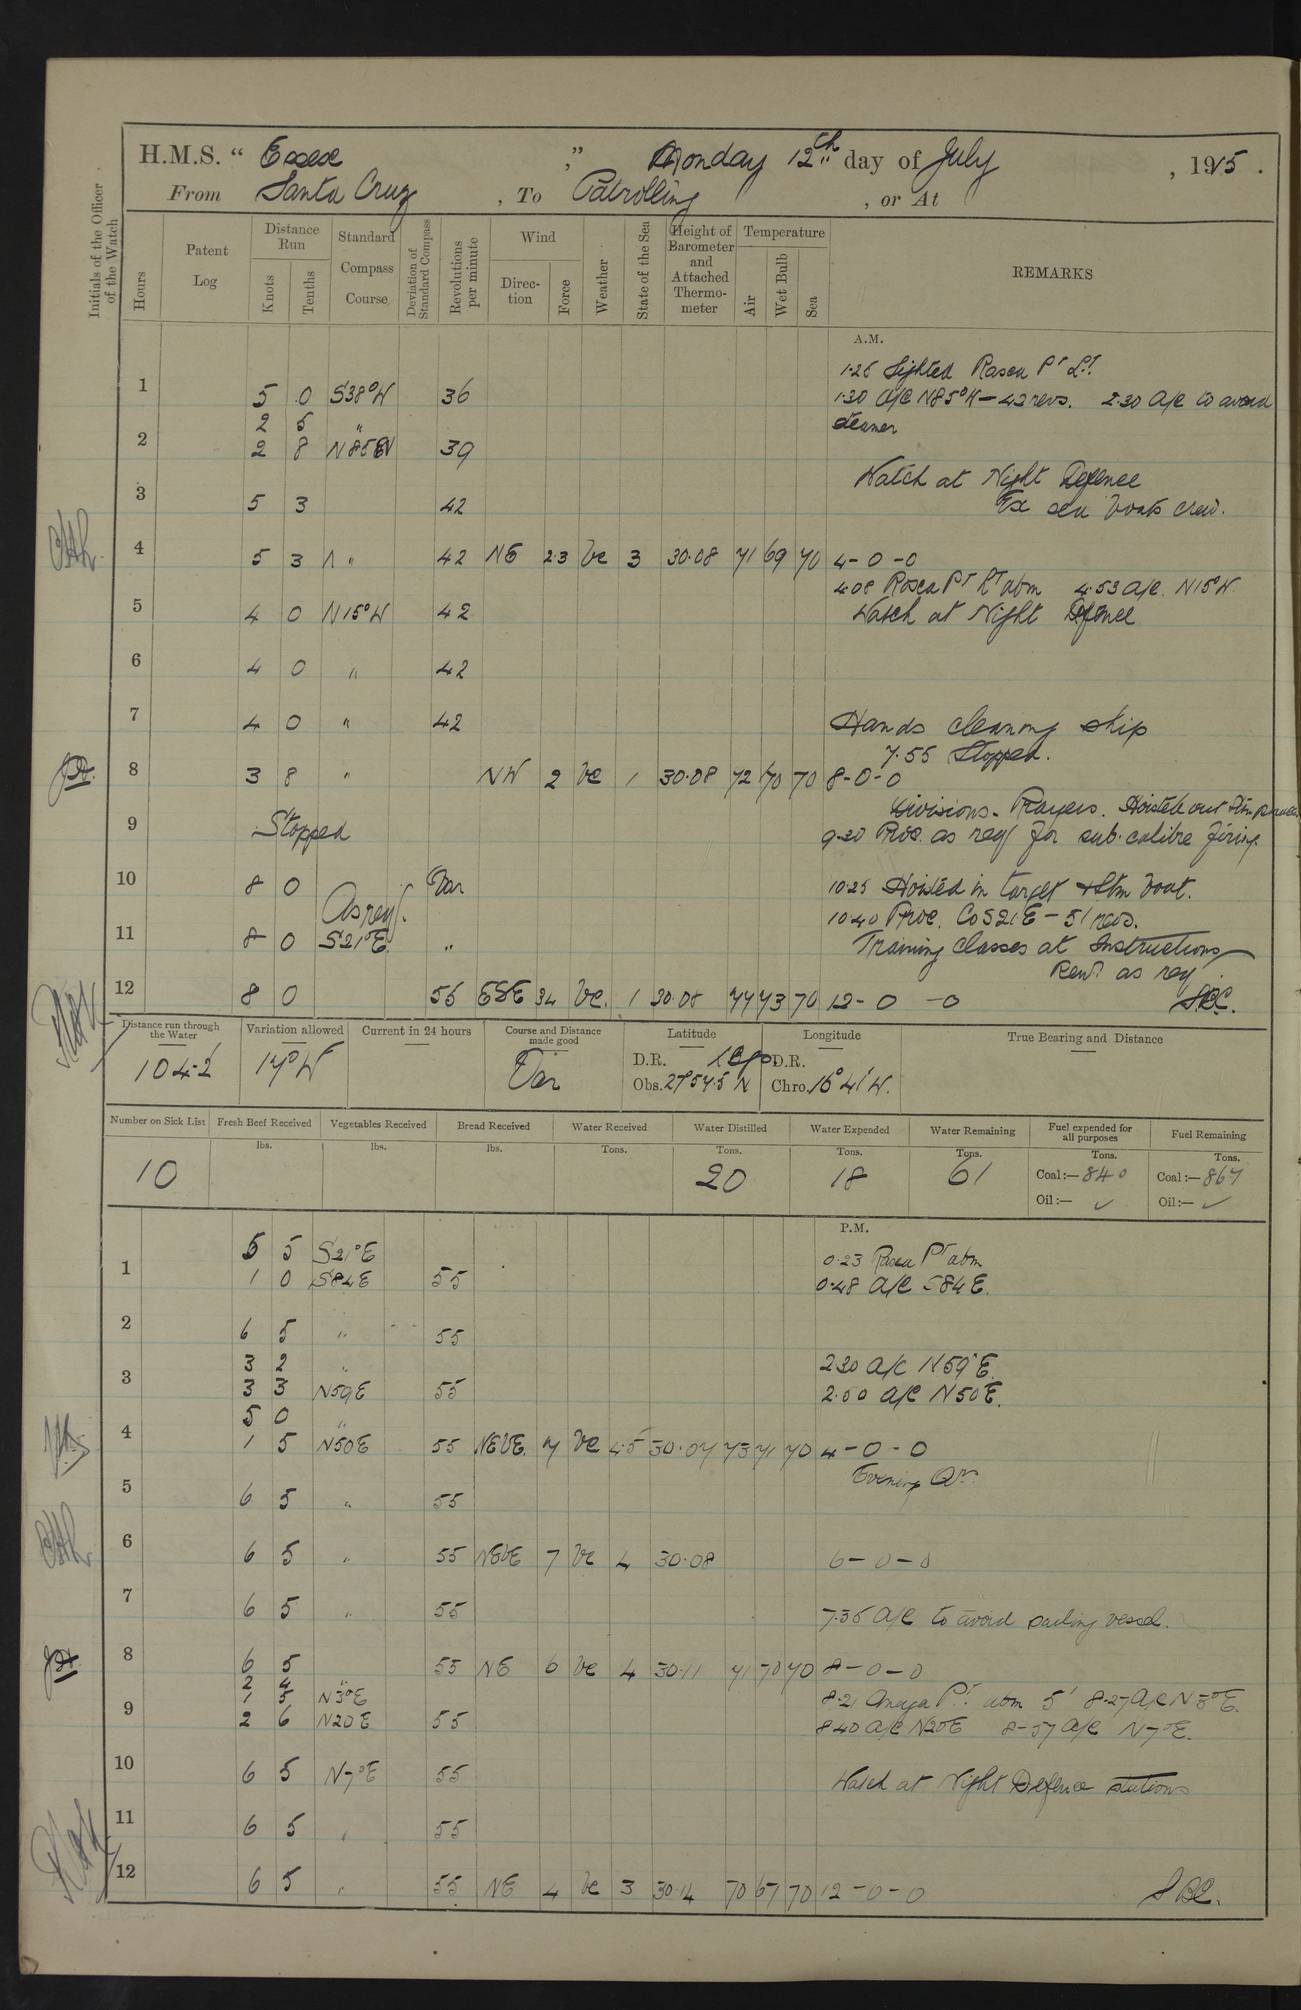 H.M.S. “ Essex ,” Monday 12th day of July , 1915 .
From Santa Cruz , To Patrolling , or At
Initials of the Officer of the Watch
Hours
Patent Log
Distance Run
Knots
Tenths
Standard Compass Course
Deviation of Standard Compass
Revolutions per minute
Wind
Direction
Force
Weather
State of the Sea
Height of Barometer and Attached Thermometer
Temperature
Air
Wet Bulb
Sea
REMARKS
A.M.
1.25 Sighted Rasca Pt Lt.
1 5 0 S38°W 36 1.30 A/C N85°W — 42 revs. 2.30 A/C to avoid
2 5 " steamer
2 2 8 N85W 39
Watch at Night Defence
3 5 3 42 Ex sea boats crew.
4 5 3 " 42 NE 23 bc 3 30.08 71 69 70 4-0-0
4.08 Rasca Pt Lt abm 4.53 A/C. N15°W.
5 4 0 N15°W 42 Watch at Night Defence
6 4 0 " 42
7 4 0 " 42 Hands cleaning ship
7.55 Stopped.
8 3 8 " NW 2 bc 1 30.08 72 70 70 8-0-0
Divisions. Prayers. Hoisted out
9 Stopped 9.20 Proc. as req for sub. calibre firing.
10 8 0 Var 10.25 Hoisted in target & Stm boat.
As req. 10.40 Proc. Co S21E — 51 revs.
11 8 0 S21°E " Training Classes at Instructions
Revs. as req
12 8 0 55 ESE 34 bc. 1 30.08 74 73 70 12-0-0
Distance run through the Water
Variation allowed
Current in 24 hours
Course and Distance made good
Latitude
Longitude
True Bearing and Distance
104.2 17°W Var
D.R. D.R.
Obs. 27°54.5 N Chro. 16°41' W.
Number on Sick List
Fresh Beef Received
Vegetables Received
Bread Received
Water Received
Water Distilled
Water Expended
Water Remaining
Fuel expended for all purposes
Fuel Remaining
lbs. lbs. lbs. Tons. Tons. Tons. Tons. Tons. Tons.
10 20 18 61 Coal:— 840 Coal:— 867
Oil:— ✓ Oil:— ✓
P.M.
5 5 S21°E 0.23 Rasca Pt abm
1 1 0 S84E 55 0.48 A/C S84E.
2 6 5 " 55
3 2 " 2.30 A/C N59°E.
3 3 3 N59E 55 A/C N50E.
5 0 "
4 1 5 N50E 55 NEbE. 7 bc 4.5 30.07 73 71 70 4-0-0
Evening Qrs.
5 6 5 " 55
6 6 5 " 55 NEbE 7 bc 4 30.08 6-0-0
7 6 5 " 55 7.35 A/C to avoid sailing vessel.
8 6 5 55 NE 6 bc 4 30.11 71 70 70 8-0-0
2 4 "
1 5 N3°E 8.21 Anaga Pt. abm 5' 8.27 A/C N3°E.
9 2 6 N20E 55 8.40 A/C N20E 8-57 A/C N7°E.
10 6 5 N7°E 55 Watch at Night Defence stations
11 6 5 " 55
12 6 5 " 55 NE 4 bc 3 30.14 70 67 70 12-0-0